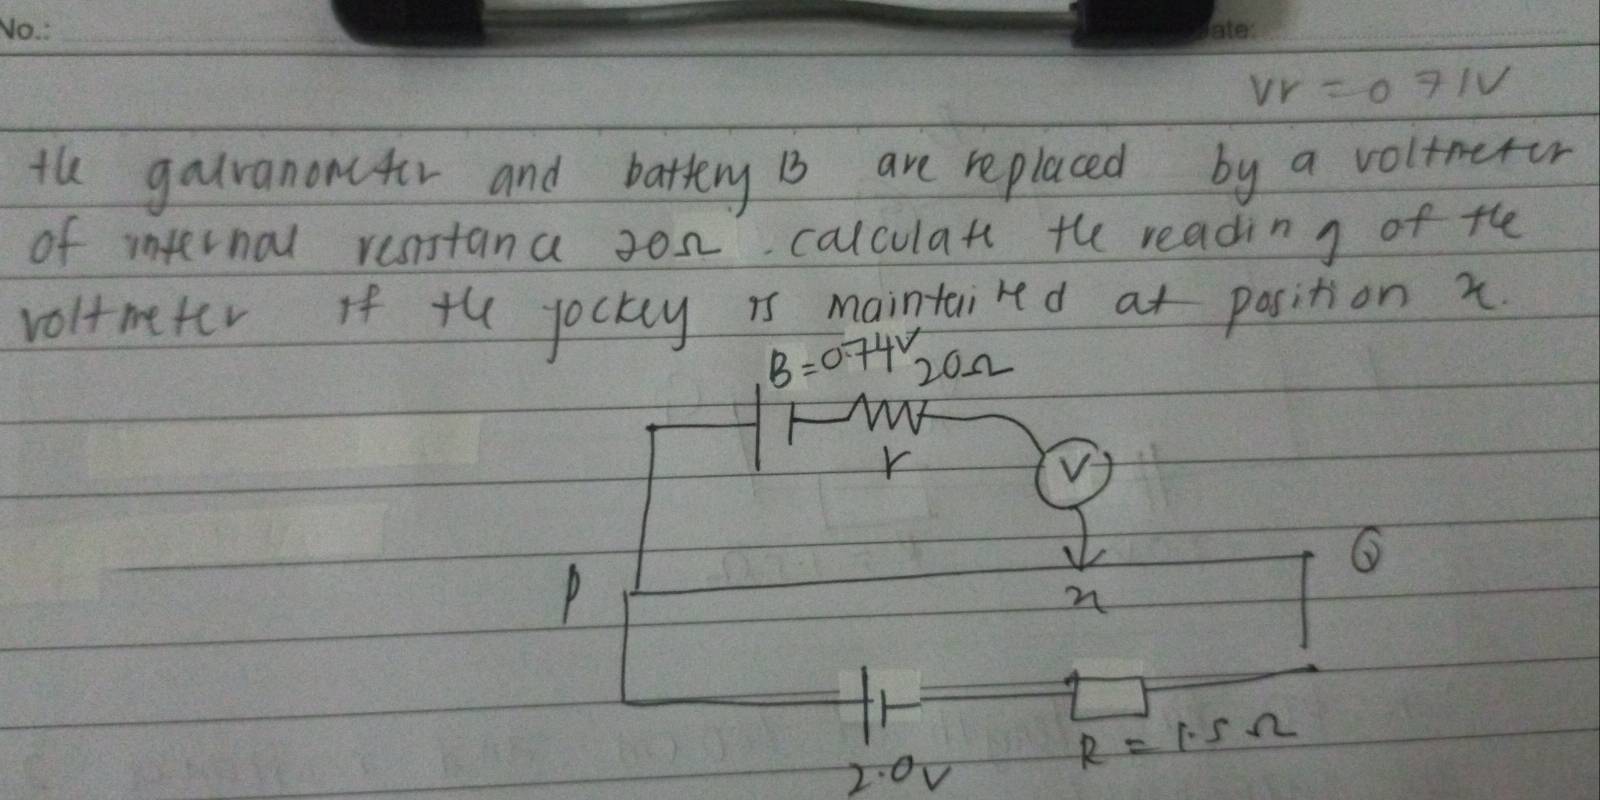 No.:
ate:
Vr = 0 71V
the galvanometer and battery B are replaced by a voltmeter
of internal resistance 20Ω. calculate the reading of the
voltmeter if the jockey is maintained at position x.
B = 0.74V 20Ω
r
V
P
Q
x
2.0V
R = 1.5 Ω